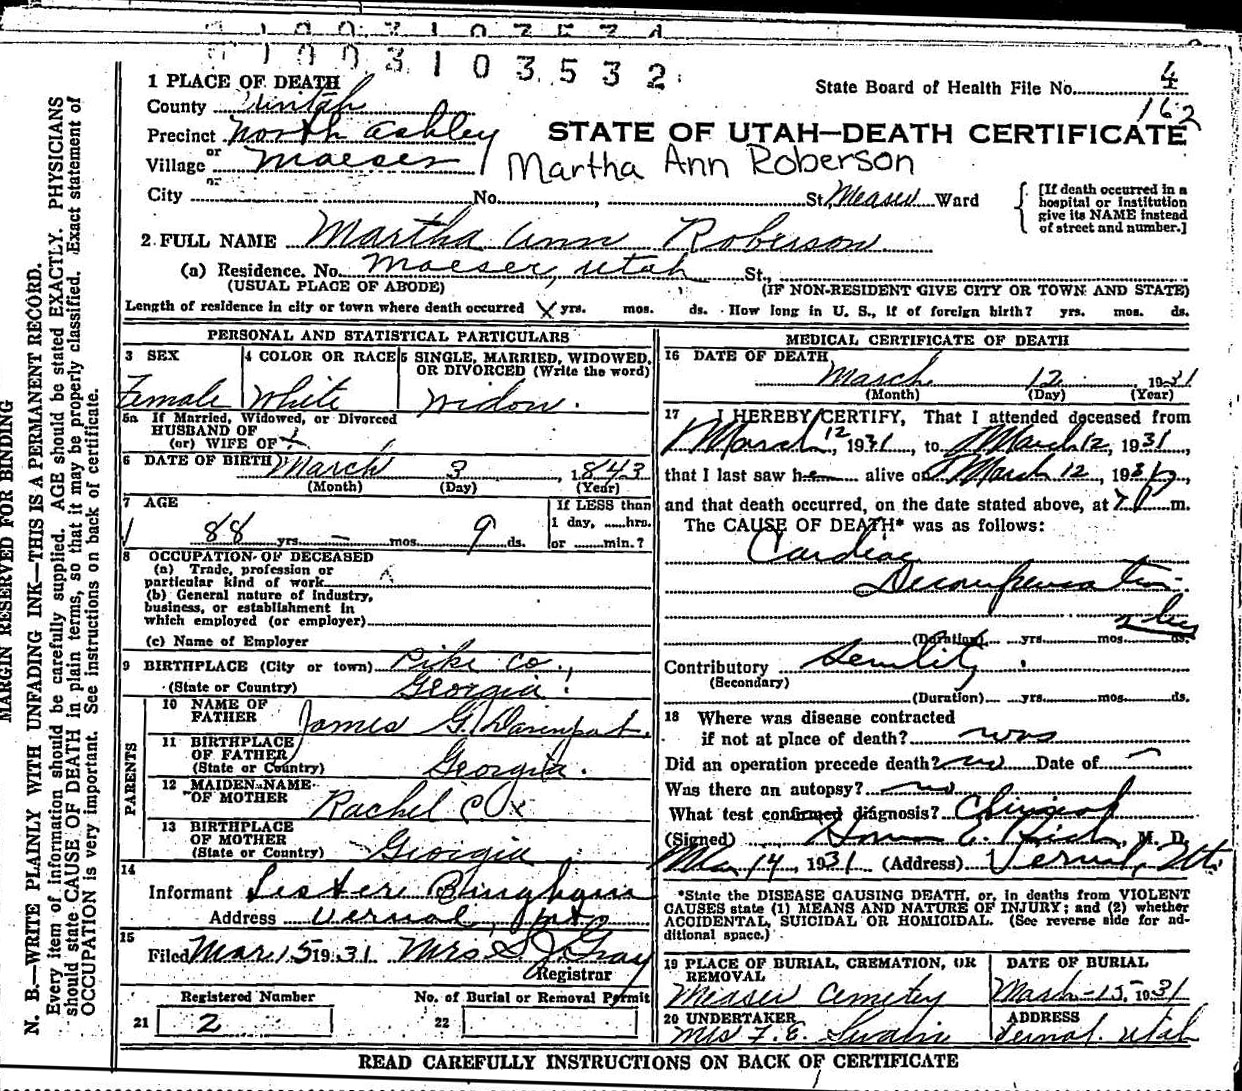 1003103532
State Board of Health File No. 4
162
1 PLACE OF DEATH
County Uintah
Precinct North Ashley
or
Village Maeser
STATE OF UTAH—DEATH CERTIFICATE
Martha Ann Roberson
City No. , St, Ward
[If death occurred in a
hospital or institution
give its NAME instead
of street and number.]
2 FULL NAME Martha Ann Roberson
(a) Residence. No. Maeser, Utah St,
(USUAL PLACE OF ABODE) (IF NON-RESIDENT GIVE CITY OR TOWN AND STATE)
Length of residence in city or town where death occurred X yrs. mos. ds. How long in U. S., if of foreign birth? yrs. mos. ds.
PERSONAL AND STATISTICAL PARTICULARS
3 SEX
Female
4 COLOR OR RACE
White
5 SINGLE, MARRIED, WIDOWED,
OR DIVORCED (Write the word)
Widow.
5a If Married, Widowed, or Divorced
HUSBAND OF
(or) WIFE OF
6 DATE OF BIRTH March 3, 1843
(Month) (Day) (Year)
7 AGE
88 yrs. — mos. 9 ds.
If LESS than
1 day, hrs.
or min.?
8 OCCUPATION OF DECEASED
(a) Trade, profession or
particular kind of work
(b) General nature of industry,
business, or establishment in
which employed (or employer)
(c) Name of Employer
9 BIRTHPLACE (City or town) Pike Co.,
(State or Country) Georgia
PARENTS
10 NAME OF
FATHER James G. Davenport.
11 BIRTHPLACE
OF FATHER
(State or Country) Georgia.
12 MAIDEN NAME
OF MOTHER Rachel Cox
13 BIRTHPLACE
OF MOTHER
(State or Country) Georgia
14
Informant Bingham
Address Vernal,
15
Filed Mar. 15 1931 Mrs S J Gray
Registrar
Registered Number No. of Burial or Removal Permit
21 2 22
MEDICAL CERTIFICATE OF DEATH
16 DATE OF DEATH
March 12 1931
(Month) (Day) (Year)
17 I HEREBY CERTIFY, That I attended deceased from
March 12, 1931, to March 12, 1931,
that I last saw her alive on March 12, 1931,
and that death occurred, on the date stated above, at 7 P m.
The CAUSE OF DEATH* was as follows:
Cardiac
Decompensation
(Duration) yrs. mos. ds.
Contributory Senility
(Secondary)
(Duration) yrs. mos. ds.
18 Where was disease contracted
if not at place of death? was
Did an operation precede death? no Date of
Was there an autopsy? no
What test confirmed diagnosis?
(Signed) E. M. D.
Mar 14, 1931 (Address) Vernal, Ut.
*State the DISEASE CAUSING DEATH, or, in deaths from VIOLENT
CAUSES state (1) MEANS AND NATURE OF INJURY; and (2) whether
ACCIDENTAL, SUICIDAL OR HOMICIDAL. (See reverse side for ad-
ditional space.)
19 PLACE OF BURIAL, CREMATION, OR
REMOVAL
Cemetery
DATE OF BURIAL
March-15-1931
20 UNDERTAKER
Mrs F. E. Swain
ADDRESS
Vernal, Utah
READ CAREFULLY INSTRUCTIONS ON BACK OF CERTIFICATE
MARGIN RESERVED FOR BINDING
N. B.—WRITE PLAINLY WITH UNFADING INK—THIS IS A PERMANENT RECORD.
Every item of information should be carefully supplied. AGE should be stated EXACTLY. PHYSICIANS
should state CAUSE OF DEATH in plain terms, so that it may be properly classified. Exact statement of
OCCUPATION is very important. See instructions on back of certificate.